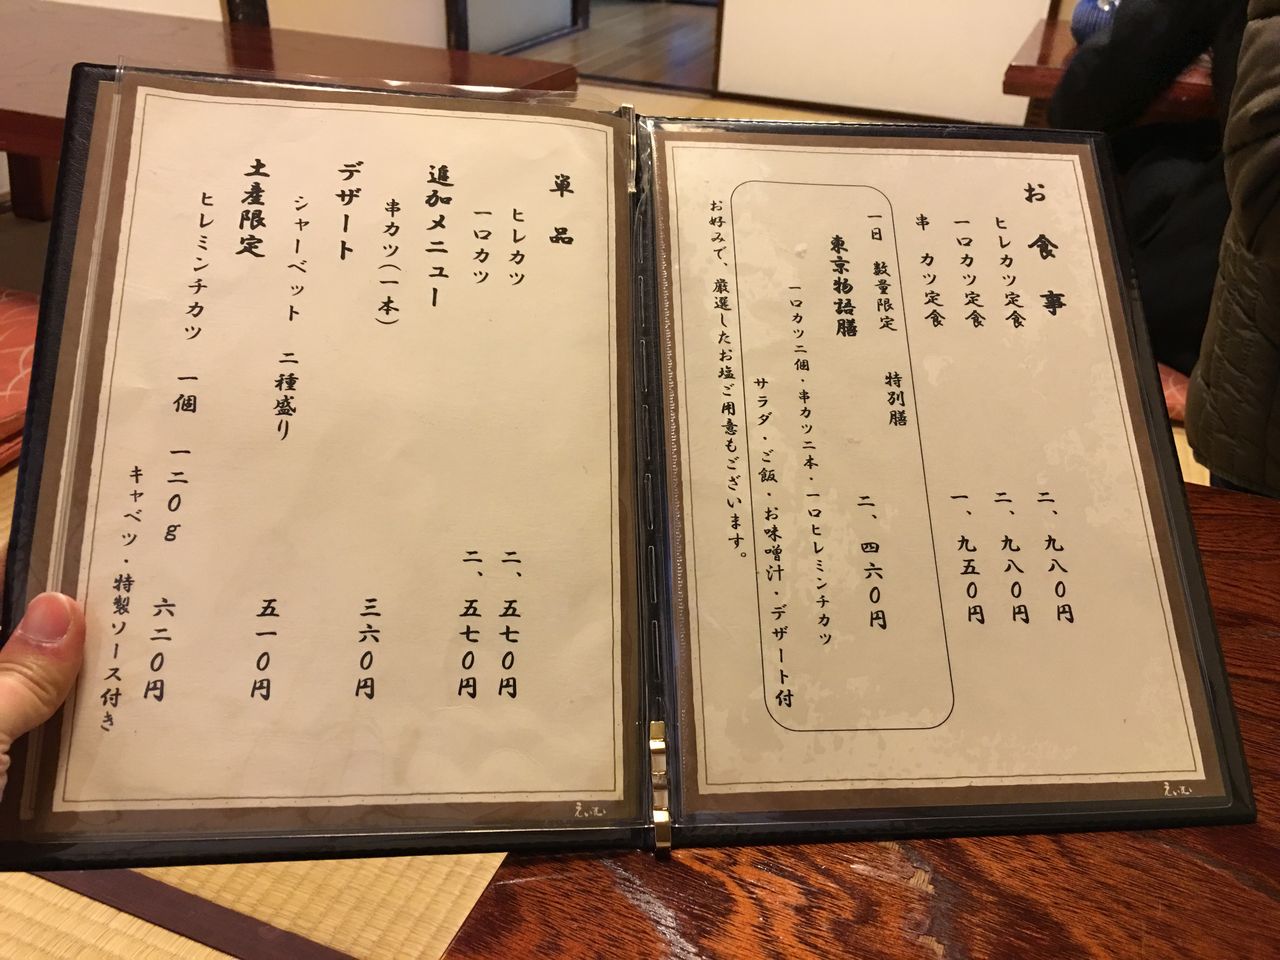 お食事
ヒレカツ定食 二、九八〇円
一口カツ定食 二、九八〇円
串カツ定食 一、九五〇円
一日 数量限定 特別膳
東京物語膳 二、四六〇円
一口カツ二個・串カツ二本・一口ヒレミンチカツ
サラダ・ご飯・お味噌汁・デザート付
お好みで、厳選したお塩ご用意もございます。
えいむ
単品
ヒレカツ 二、五七〇円
一口カツ 二、五七〇円
追加メニュー
串カツ(一本) 三六〇円
デザート
シャーベット 二種盛り 五一〇円
土産限定
ヒレミンチカツ 一個 一二〇g 六二〇円
キャベツ・特製ソース付き
えいむ